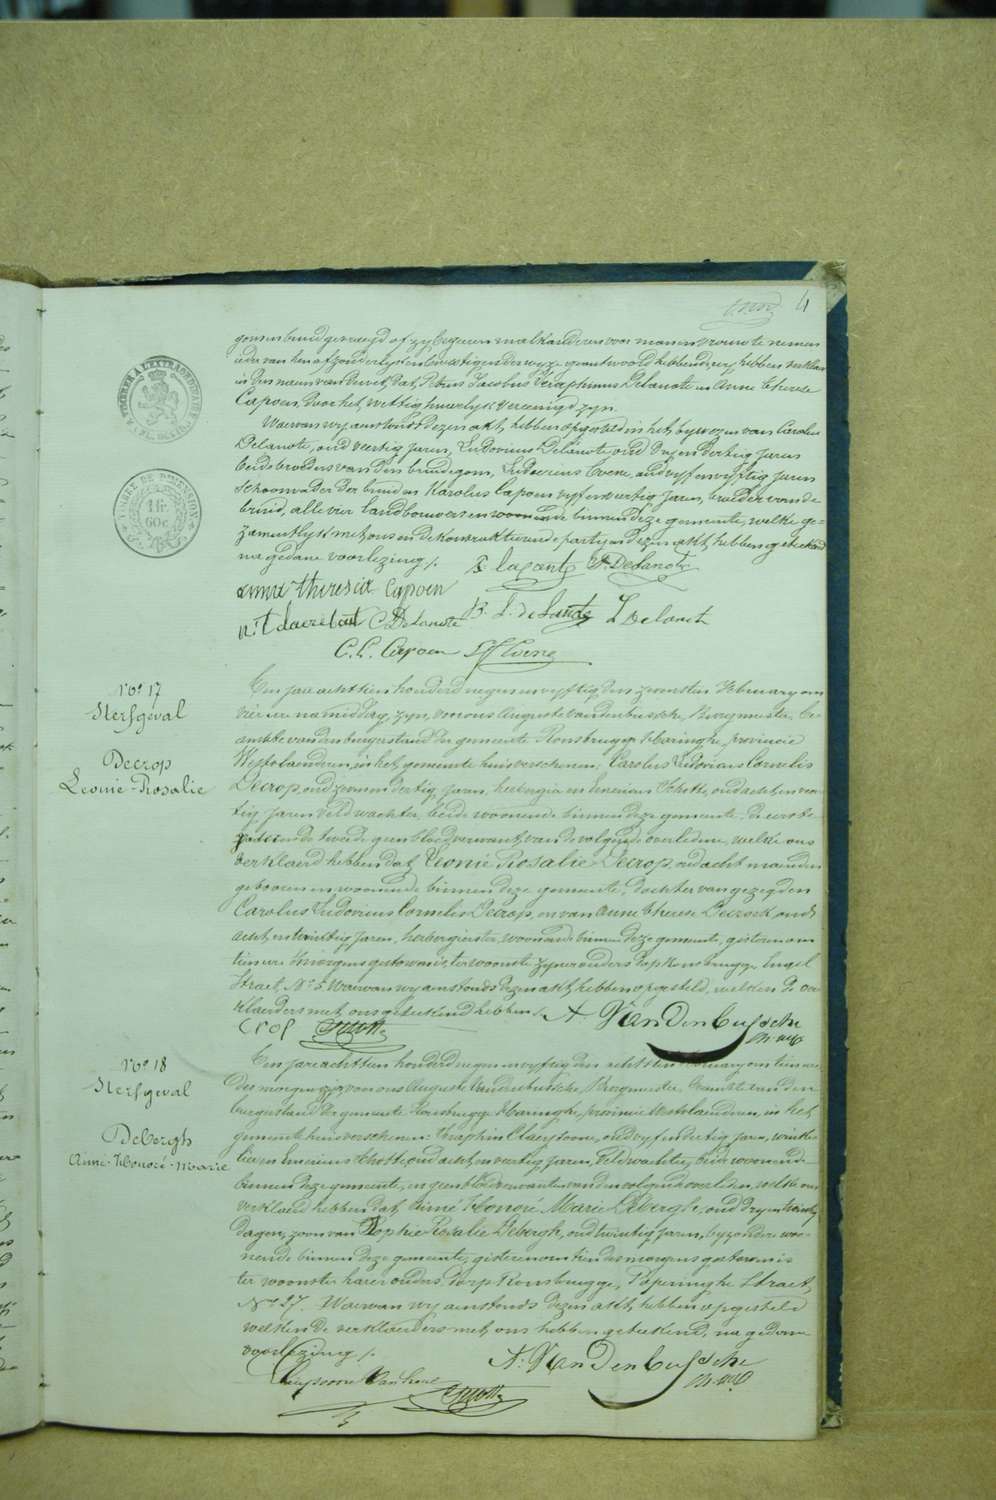 4
TIMBRE A L'EXTRAORDINAIRE
TIMBRE DE DIMENSION
1 fr. 60 c.
gom en bruid gevraegd of zy begeeren malkanderen voor man en vrouw te nemen
ieder van hen afzonderlyk en bevestigender wyze geantwoord hebbende, wy hebben verklaer
in den naem van de wet, dat Petrus Jacobus Seraphinus Delanote en Anne Therese
Capoen, door het wettig huwelyk vereenigd zyn.
Waervan wy aenstonds dezen akt hebben opgesteld in het bywezen van Carolus
Delanote, oud veertig jaren, Ludovicus Delanote oud dry en dertig jaren
beide broeders van den bruidegom, Ludovicus Coene, oud vyf en vyftig jaren
schoonvader der bruid en Karolus Capoen vyf en veertig jaren, broeder van de
bruid, alle vier landbouwers en woonende binnen deze gemeente, welke ge-
zamentlyk met ons en de kontrakteerende partyen dezen akt hebben geteekend
na gedane voorlezing /.
P. Delanote
anna theresia Capoen
C. Delanote
L. Delanote
C. L. Capoen
Coene
No. 17
Sterfgeval
Decrop
Leonie-Rosalie
Ten jare achttien honderd negen en vyftig den zevensten February om
vier ure namiddag, zyn, voor ons Auguste Vandenbussche, Burgmeester, be-
ambte van den burgerstand der gemeente Ronsbrugge-Haringhe, provincie
Westvlaenderen, in het gemeente huis verschenen: Carolus Ludovicus Cornelis
Decrop, oud zeven en dertig jaren, herbergier en Emerius Schotte, oud acht en veer-
tig jaren veldwachter, beide woonende binnen deze gemeente, de eerste
vader en de tweede geen bloedverwant van de volgende overledene, welke ons
verklaerd hebben dat Leonie Rosalie Decrop, oud acht maenden
geboren en woonende binnen deze gemeente, dochter van gezegden
Carolus Ludovicus Cornelis Decrop, en van Anne Therese oud
acht en twintig jaren, herbergierster, woonende binnen deze gemeente, gisteren om
tien ure 's morgens gestorven is, ter woonste zyner ouders dorp Ronsbrugge Engel
Straet, No. 5. Waervan wy aenstonds dezen akt hebben opgesteld, welken de ver-
klaerders met ons geteekend hebben /.
A. VanDenbussche
Crop
Schotte
No. 18
Sterfgeval
Debergh
Aimé-Honoré-Marie
Ten jare achttien honderd negen en vyftig den achtsten February om tien ure
des morgens zyn voor ons Auguste Vandenbussche, Burgmeester beambte van den
burgerstand der gemeente Ronsbrugge Haringhe, provincie Westvlaenderen, in het
gemeente huis verschenen: Seraphin Claeysoone, oud vyf en dertig jaren, winke-
lier en Emerius Schotte, oud acht en veertig jaren, veldwachter, beide woonende
binnen deze gemeente, en geen bloedverwanten van den volgende overleden, welke ons
verklaerd hebben dat Aimé Honoré Marie Debergh, oud dry en twintig
dagen, zoon van Sophie Rosalie Debergh, oud twintig jaren, byzondere woo-
nende binnen deze gemeente, gisteren om tien des morgens gestorven is
ter woonste harer ouders, dorp Ronsbrugge, Poperinghe Straet,
No. 27. Waervan wy aenstonds dezen akt hebben opgesteld
welken de verklaerders met ons hebben geteekend, na gedane
voorlezing /.
A. VanDenbussche
Schotte